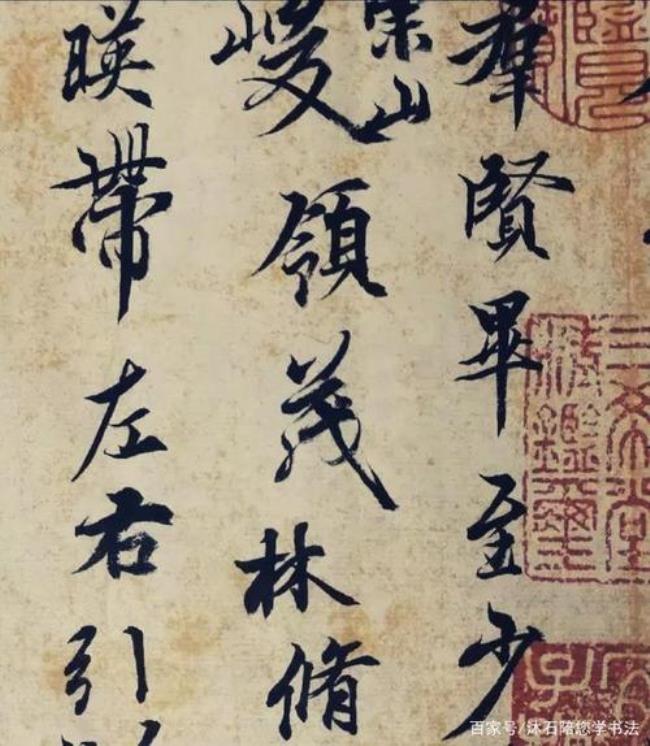 羣賢畢至少
崇山
峻領茂林脩
暎帶左右引
三希堂
精鑒璽
百家号/沐石陪您学书法